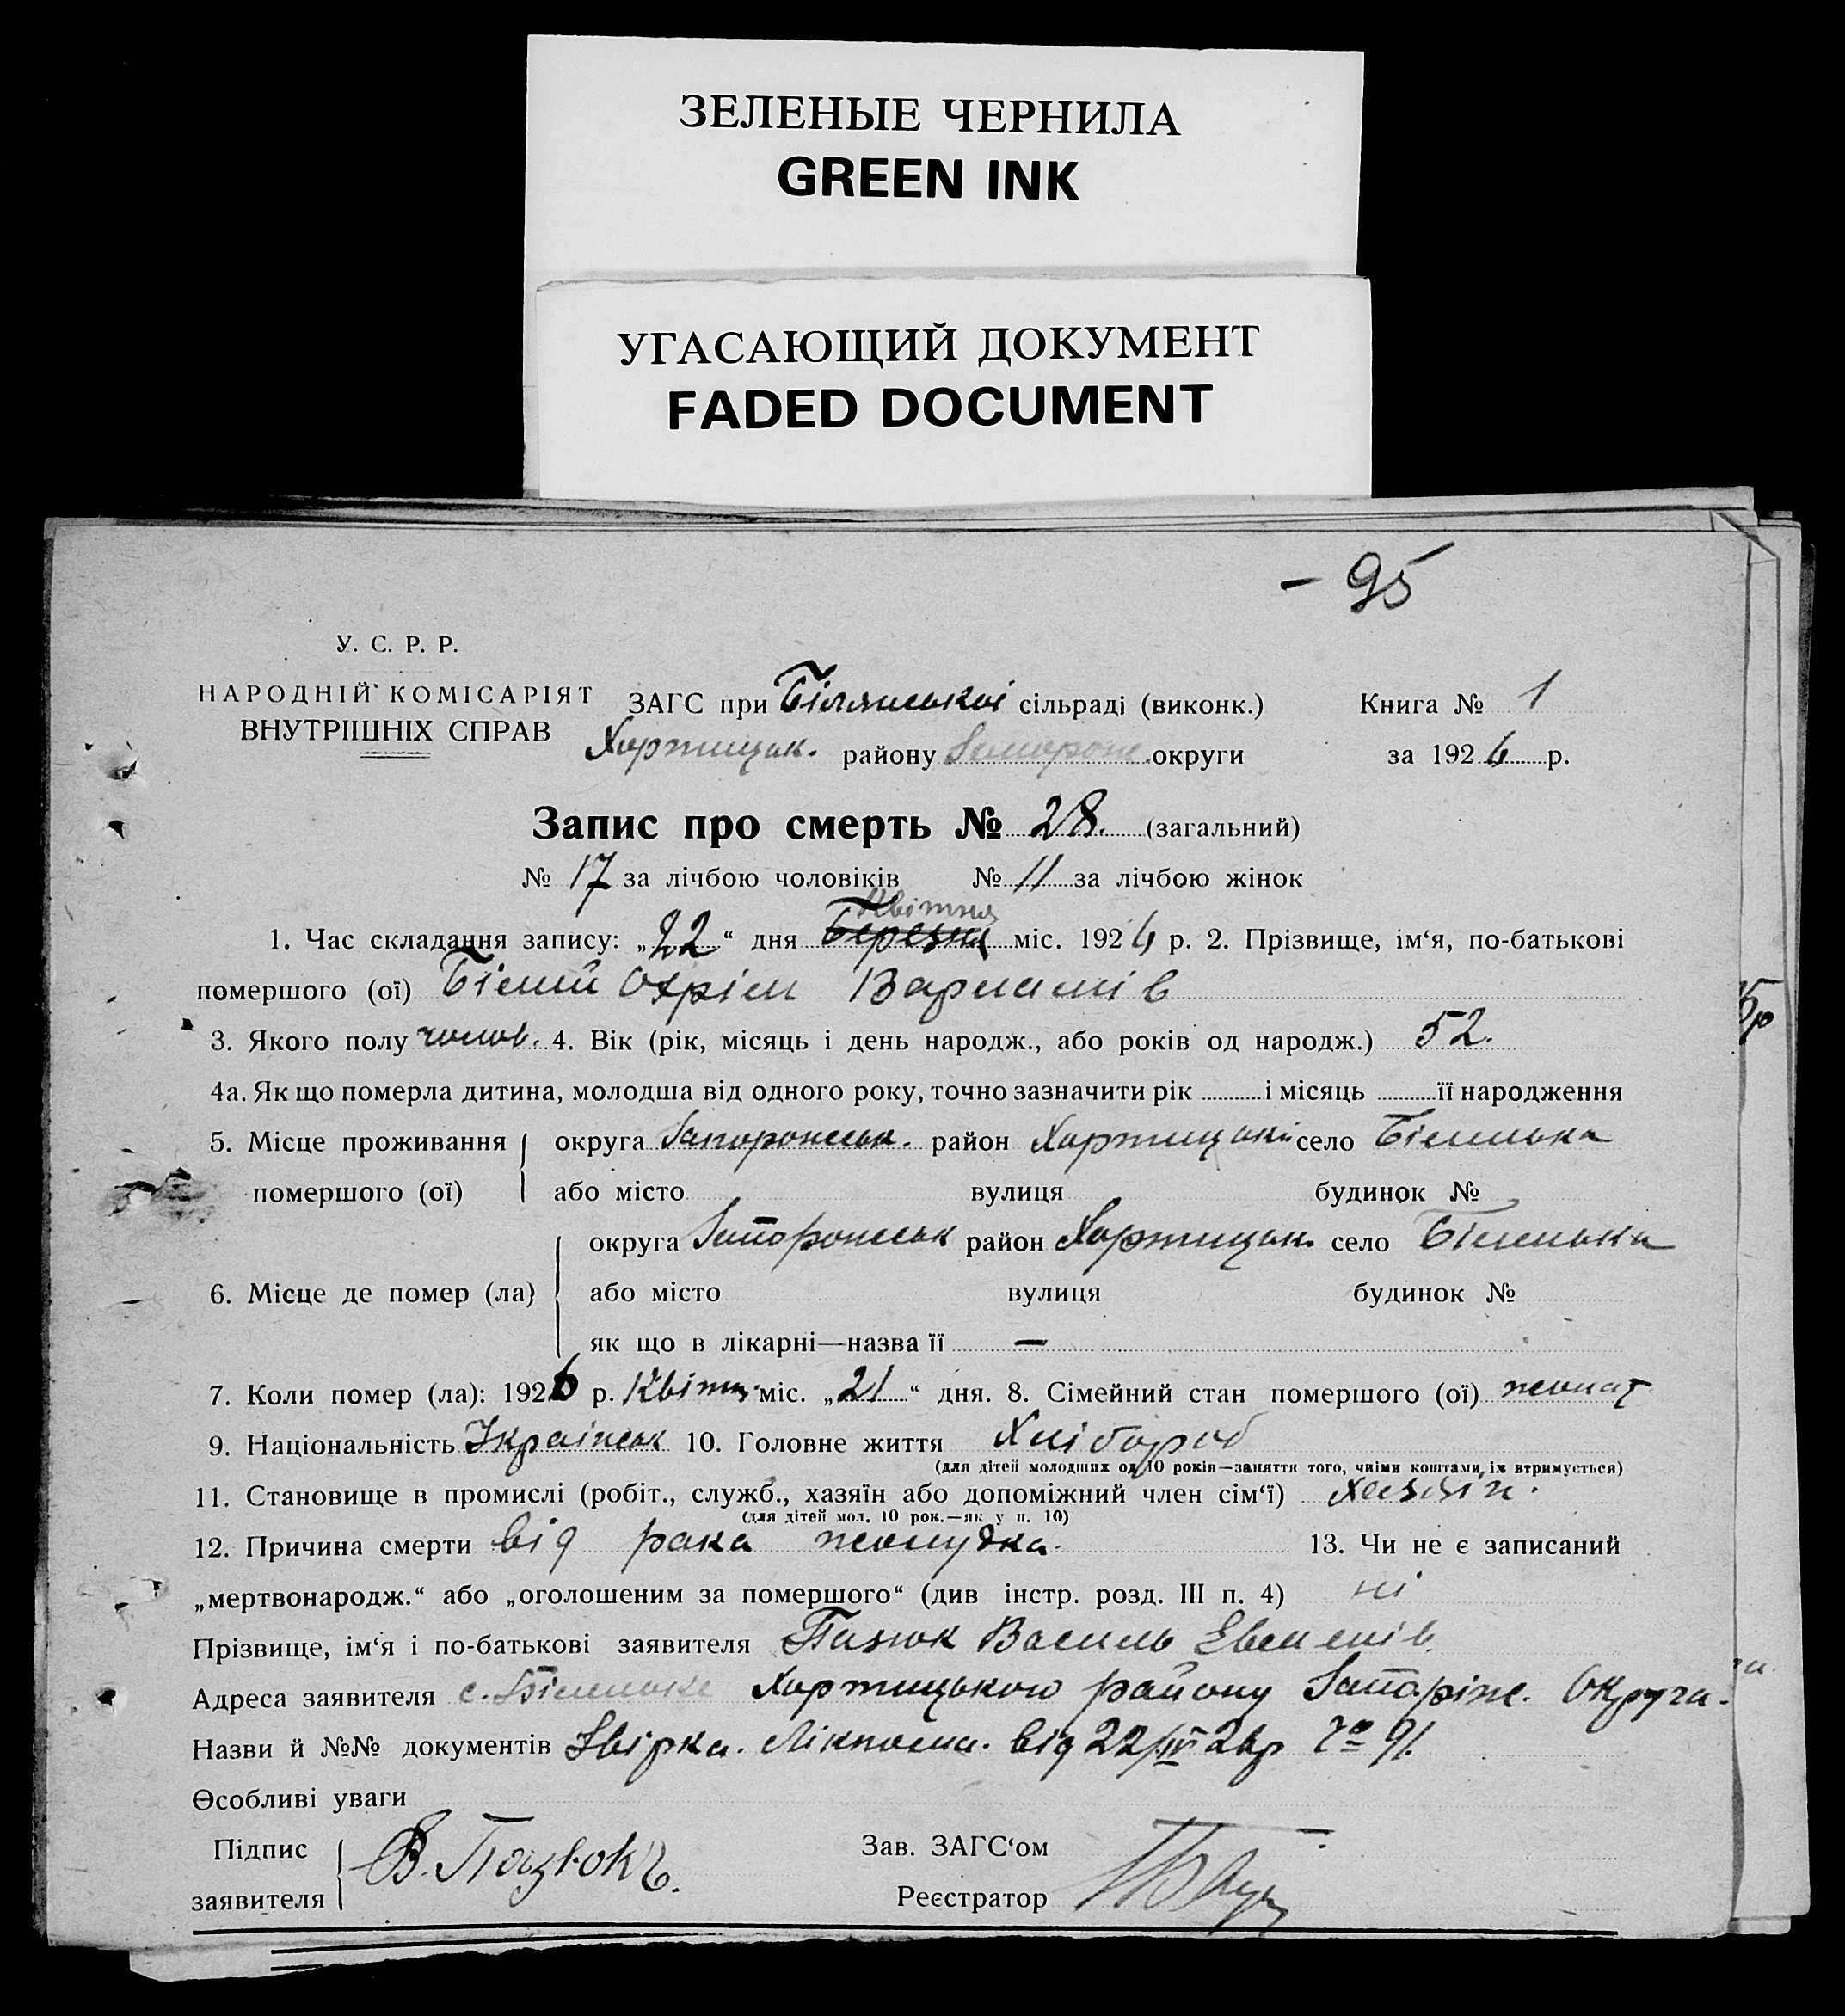 ЗЕЛЕНЫЕ ЧЕРНИЛА
GREEN INK
УГАСАЮЩИЙ ДОКУМЕНТ
FADED DOCUMENT
- 95
У. С. Р. Р.
НАРОДНІЙ КОМІСАРІЯТ
ВНУТРІШНІХ СПРАВ
ЗАГС при Білянській сільраді (виконк.) Книга № 1
Хортицьк. району Запорож. округи за 1926 р.
Запис про смерть № 28. (загальний)
№ 17 за лічбою чоловіків № 11 за лічбою жінок
Квітня
1. Час складання запису: „22“ дня Березня міс. 1926 р. 2. Прізвище, ім‘я, по-батькові
помершого (ої) Білий Охрім Варламів
3. Якого полу чолов. 4. Вік (рік, місяць і день народж., або років од народж.) 52.
4а. Як що померла дитина, молодша від одного року, точно зазначити рік і місяць її народження
5. Місце проживання округа Запорожськ. район Хортицький село Біленька
помершого (ої) або місто вулиця будинок №
округа Запорожськ район Хортицьк. село Біленька
6. Місце де помер (ла) або місто вулиця будинок №
як що в лікарні—назва її —
7. Коли помер (ла): 1926 р. Квітн. міс. „21“ дня. 8. Сімейний стан помершого (ої) жонат
9. Національність Українськ 10. Головне життя Хлібороб
(для дітей молодших од 10 років—заняття того, чиїми коштами їх втримується)
11. Становище в промислі (робіт., служб., хазяїн або допоміжний член сім‘ї) хазяїн.
(для дітей мол. 10 рок.—як у п. 10)
12. Причина смерти від рака жолудка. 13. Чи не є записаний
„мертвонародж.“ або „оголошеним за помершого“ (див інстр. розд. III п. 4) ні
Прізвище, ім‘я і по-батькові заявителя Пазюк Василь
Адреса заявителя с. Біленьке Хортицького району Запоріж. Округа.
Назви й №№ документів від 22/IV 26р 91.
Особливі уваги
Підпис
заявителя В. Пазюкъ.
Зав. ЗАГС‘ом
Реєстратор